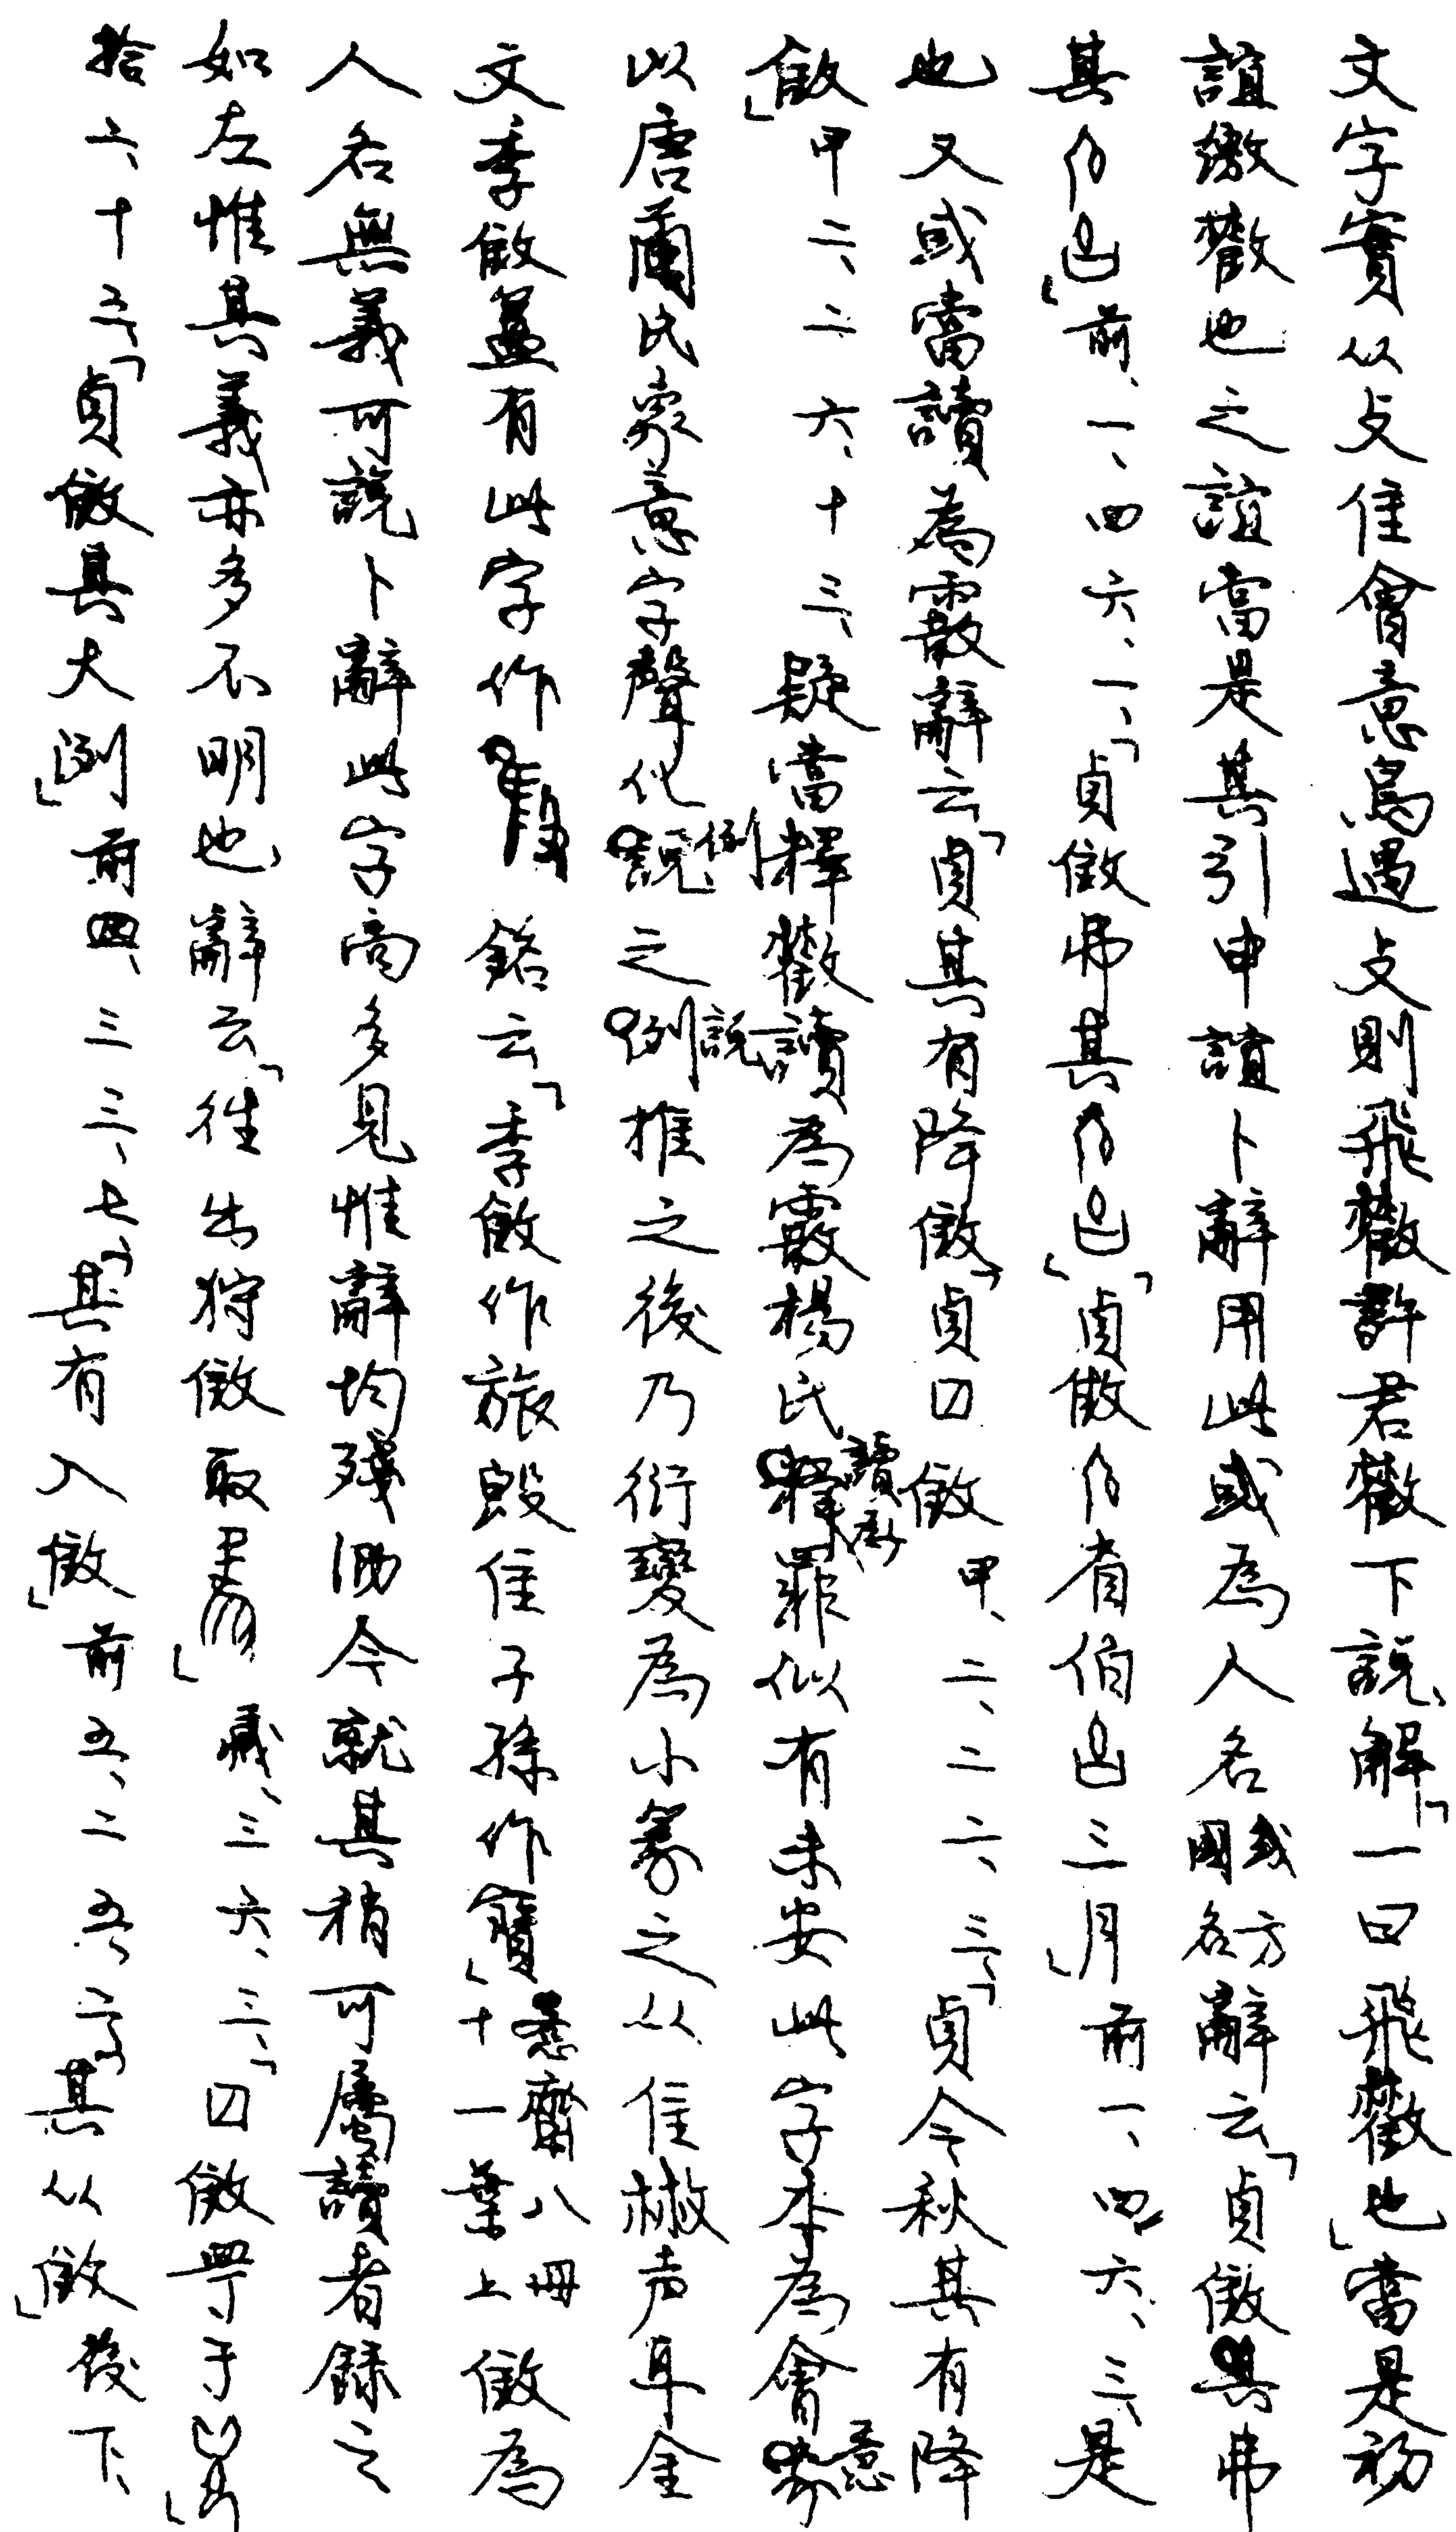 文字實从攴隹會意鳥遇攴則飛𢿱許君𢿱下說解「一曰飛𢿱也」當是初
誼繳𢿱也之誼當是其引申誼卜辭用此或為人名或方國名辭云「貞㪚其弗
其」前、一、四六、一、「貞㪚弗其」「貞㪚𡆥伯三月」前一、四六、三、是
也又或當讀為霰辭云「貞其有降㪚」貞曰㪚甲、二、二六、三、「貞今秋其有降
㪚」甲二、二六、十三、疑當釋𢿱讀為霰楊氏讀為罪似有未安此字本為會意
以唐蘭氏象意字聲化例之說推之後乃衍變為小篆之从隹㪔声耳金
文季㪚簋有此字作 銘云「季㪚作旅毀隹子孫作寶」愙齋八冊十一葉上㪚為
人名無義可說卜辭此字尚多見惟辭均殘泐今就其稍可屬讀者錄之
如左惟其義亦多不明也辭云「往出狩㪚取」藏、三六、三、「曰㪚𠦪于」
拾六、十三、「貞㪚其大㓝」前四、三三、七、「其有入㪚」前五、二五、二、「其从㪚」後下、